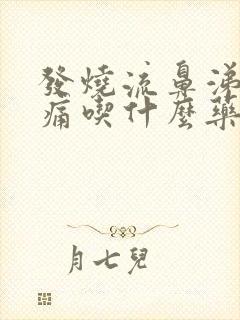 發燒流鼻涕
痛喫什麼藥
月七兒